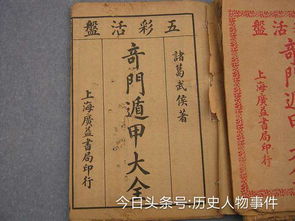 五彩活盤
諸葛武侯著
奇門遁甲大全
上海廣益書局印行
活盤
上海廣益書局印行
今日头条号:历史人物事件